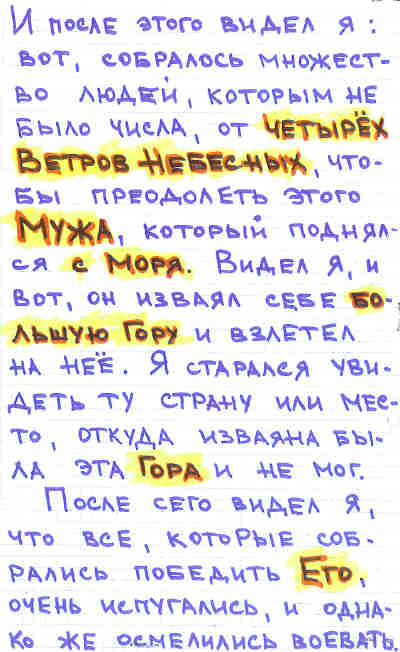 И ПОСЛЕ ЭТОГО ВИДЕЛ Я:
ВОТ, СОБРАЛОСЬ МНОЖЕСТ-
ВО ЛЮДЕЙ, КОТОРЫМ НЕ
БЫЛО ЧИСЛА, ОТ ЧЕТЫРЁХ
ВЕТРОВ НЕБЕСНЫХ, ЧТО-
БЫ ПРЕОДОЛЕТЬ ЭТОГО
МУЖА, КОТОРЫЙ ПОДНЯЛ-
СЯ С МОРЯ. ВИДЕЛ Я, И
ВОТ, ОН ИЗВАЯЛ СЕБЕ БО-
ЛЬШУЮ ГОРУ И ВЗЛЕТЕЛ
НА НЕЁ. Я СТАРАЛСЯ УВИ-
ДЕТЬ ТУ СТРАНУ ИЛИ МЕС-
ТО, ОТКУДА ИЗВАЯНА БЫ-
ЛА ЭТА ГОРА И НЕ МОГ.
ПОСЛЕ СЕГО ВИДЕЛ Я,
ЧТО ВСЕ, КОТОРЫЕ СОБ-
РАЛИСЬ ПОБЕДИТЬ ЕГО,
ОЧЕНЬ ИСПУГАЛИСЬ, И ОДНА-
КО ЖЕ ОСМЕЛИЛИСЬ ВОЕВАТЬ.